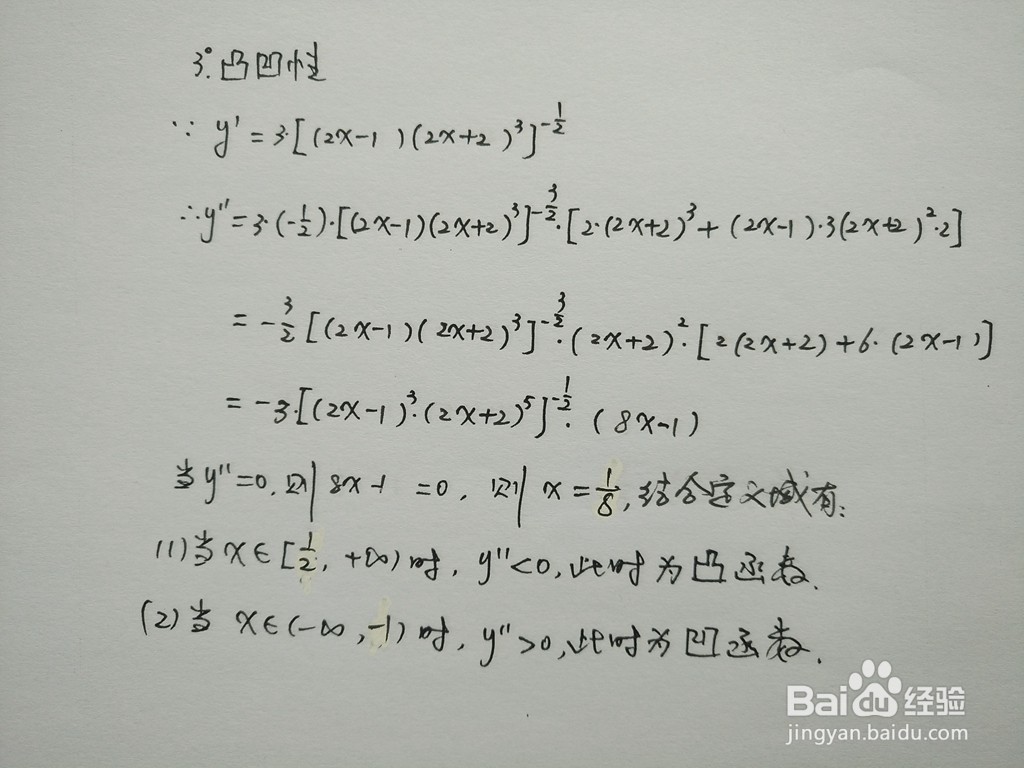 3°.凸凹性
∵ y' = 3·[(2x-1)(2x+2)³]^{-1/2}
∴y''=3·(-1/2)·[(2x-1)(2x+2)³]^{-3/2}·[2·(2x+2)³+(2x-1)·3(2x+2)²·2]
= -3/2 [(2x-1)(2x+2)³]^{-3/2}·(2x+2)²·[2(2x+2)+6·(2x-1)]
= -3·[(2x-1)³·(2x+2)⁵]^{-1/2}·(8x-1)
当y''=0,则8x-1=0,则x=1/8,结合定义域有:
(1)当x∈[1/2,+∞)时,y''<0,此时为凸函数.
(2)当 x∈(-∞,-1)时,y''>0,此时为凹函数.
Baidu经验
jingyan.baidu.com